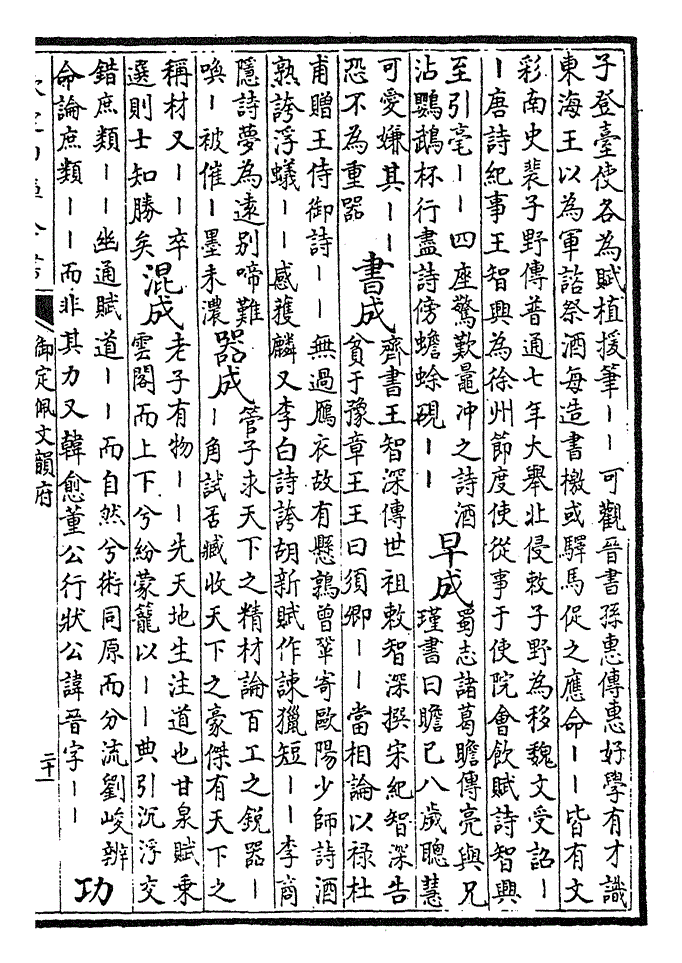 子登臺使各為賦植援筆｜｜可觀晉書孫惠傳惠好學有才識
東海王以為軍諮祭酒每造書檄或驛馬促之應命｜｜皆有文
彩南史裴子野傳普通七年大舉北侵敕子野為移魏文受詔｜
｜唐詩紀事王智興為徐州節度使從事于使院會飲賦詩智興
至引毫｜｜四座驚歎鼂冲之詩酒
沾鸚鵡杯行盡詩傍蟾蜍硯｜｜
早成
蜀志諸葛瞻傳亮與兄
瑾書曰瞻已八歲聰慧
可愛嫌其｜｜
恐不為重器
書成
齊書王智深傳世祖敕智深撰宋紀智深告
貧于豫章王王曰須卿｜｜當相論以祿杜
甫贈王侍御詩｜｜無過鴈衣故有懸鶉曾鞏寄歐陽少師詩酒
熟誇浮蟻｜｜感獲麟又李白詩誇胡新賦作諫獵短｜｜李商
隱詩夢為遠別啼難
喚｜被催｜墨未濃
器成
管子求天下之精材論百工之銳器｜
｜角試否臧收天下之豪傑有天下之
稱材又｜｜卒
選則士知勝矣
混成
老子有物｜｜先天地生注道也甘泉賦乘
雲閣而上下兮紛蒙籠以｜｜典引沉浮交
錯庶類｜｜幽通賦道｜｜而自然兮術同原而分流劉峻辨
命論庶類｜｜而非其力又韓愈董公行狀公諱晉字｜｜
功
御定佩文韻府
二十一